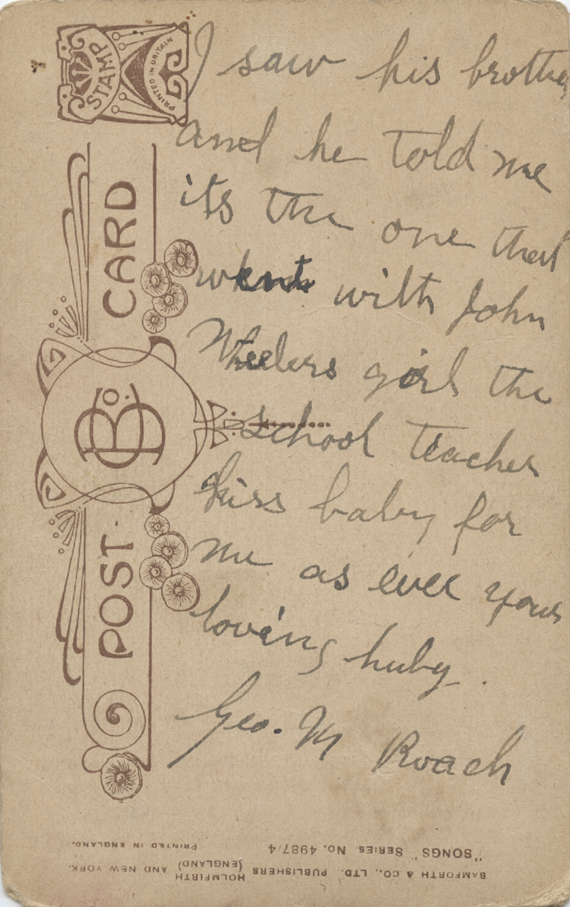 STAMP
PRINTED IN BRITAIN
POST CARD
B Co.
I saw his brother
and he told me
its the one that
went with John
Wheelers girl the
School teacher
Kiss baby for
me as ever your
loving huby.
Geo. M Roach
BAMFORTH & CO., LTD. PUBLISHERS (ENGLAND) HOLMFIRTH AND NEW YORK.
"SONGS" SERIES NO. 4987/4 PRINTED IN ENGLAND.